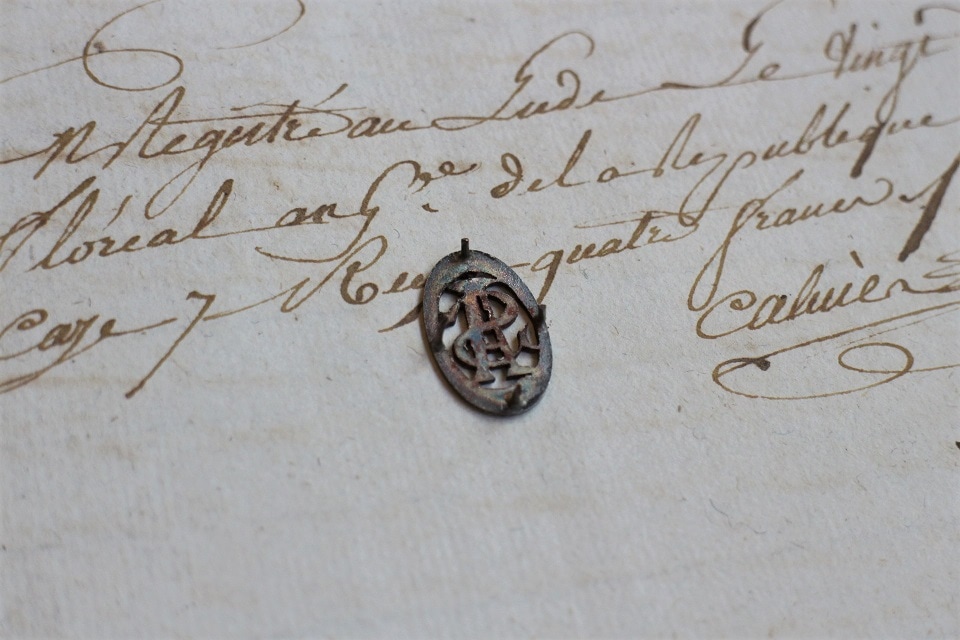 Registré au Lude Le vingt
floréal an 6.e de la Republique
Case 7 Reçu quatre francs
Cahier